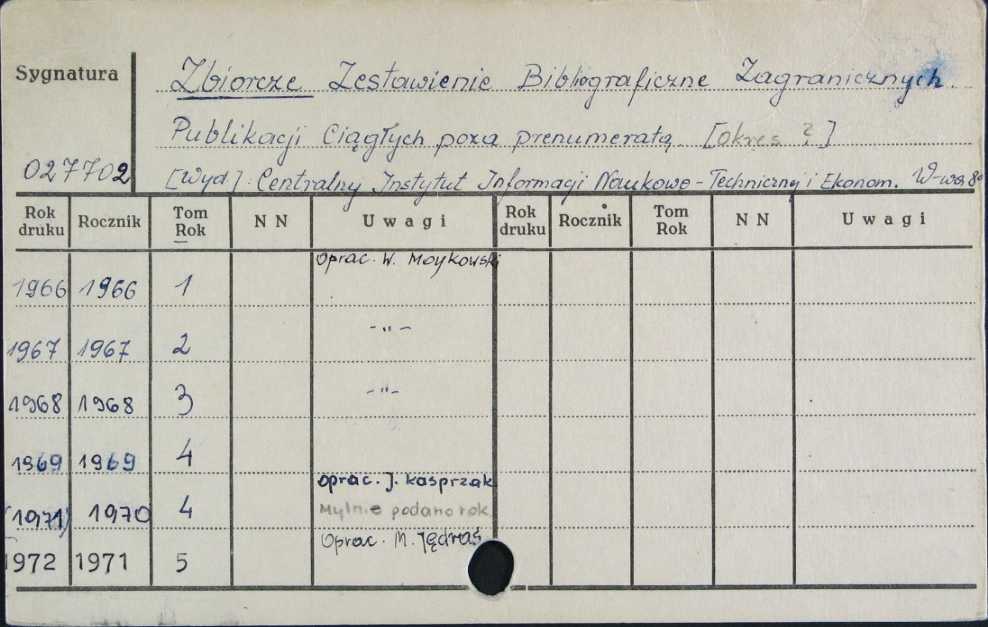 Sygnatura
Zbiorcze Zestawienie Bibliograficzne Zagranicznych
Publikacji Ciągłych poza prenumeratą [okres ?]
027702
[Wyd]. Centralny Instytut Informacji Naukowo-Techniczny i Ekonom. W-wa 8°
Rok druku Rocznik Tom Rok N N Uwagi Rok druku Rocznik Tom Rok N N Uwagi
oprac. W. Moykowski
1966 1966 1
1967 1967 2 -"-
1968 1968 3 -"-
1969 1969 4
oprac. J. Kasprzak
(1971) 1970 4 Mylnie podano rok
Oprac. M. Jędraś
1972 1971 5